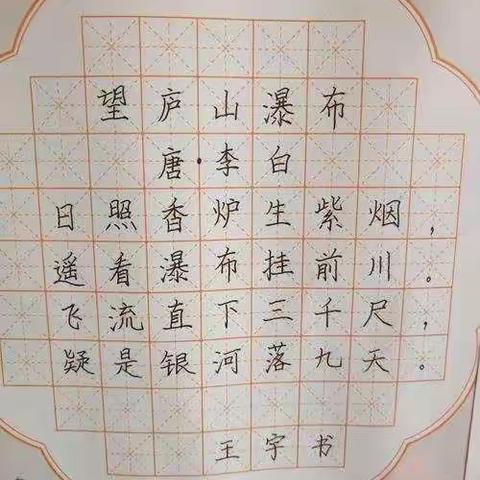 望庐山瀑布
唐·李白
日照香炉生紫烟，
遥看瀑布挂前川。
飞流直下三千尺，
疑是银河落九天。
王宇书